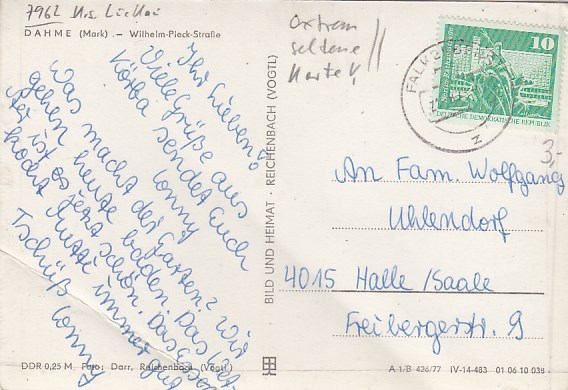 7962
DAHME (Mark) – Wilhelm-Pieck-Straße
Extrem
seltene
Karte!
10
DEUTSCHE DEMOKRATISCHE REPUBLIK
FALKEN
3,-
Ihr Lieben!
Viele Grüße aus
sendet Euch
Conny
Was macht der Garten? Wir
gehen heute baden. Das
ist es jetzt schön. Das Essen
kocht Mutti immer gut
Tschüß Conny
BILD UND HEIMAT · REICHENBACH (VOGTL)
An Fam. Wolfgang
Uhlendorf
4015 Halle/Saale
Freibergerstr. 9
DDR 0,25 M, Foto: Darr, Reichenbach (Vogtl)
A 1/B 426/77 IV-14-483 01 06 10 038